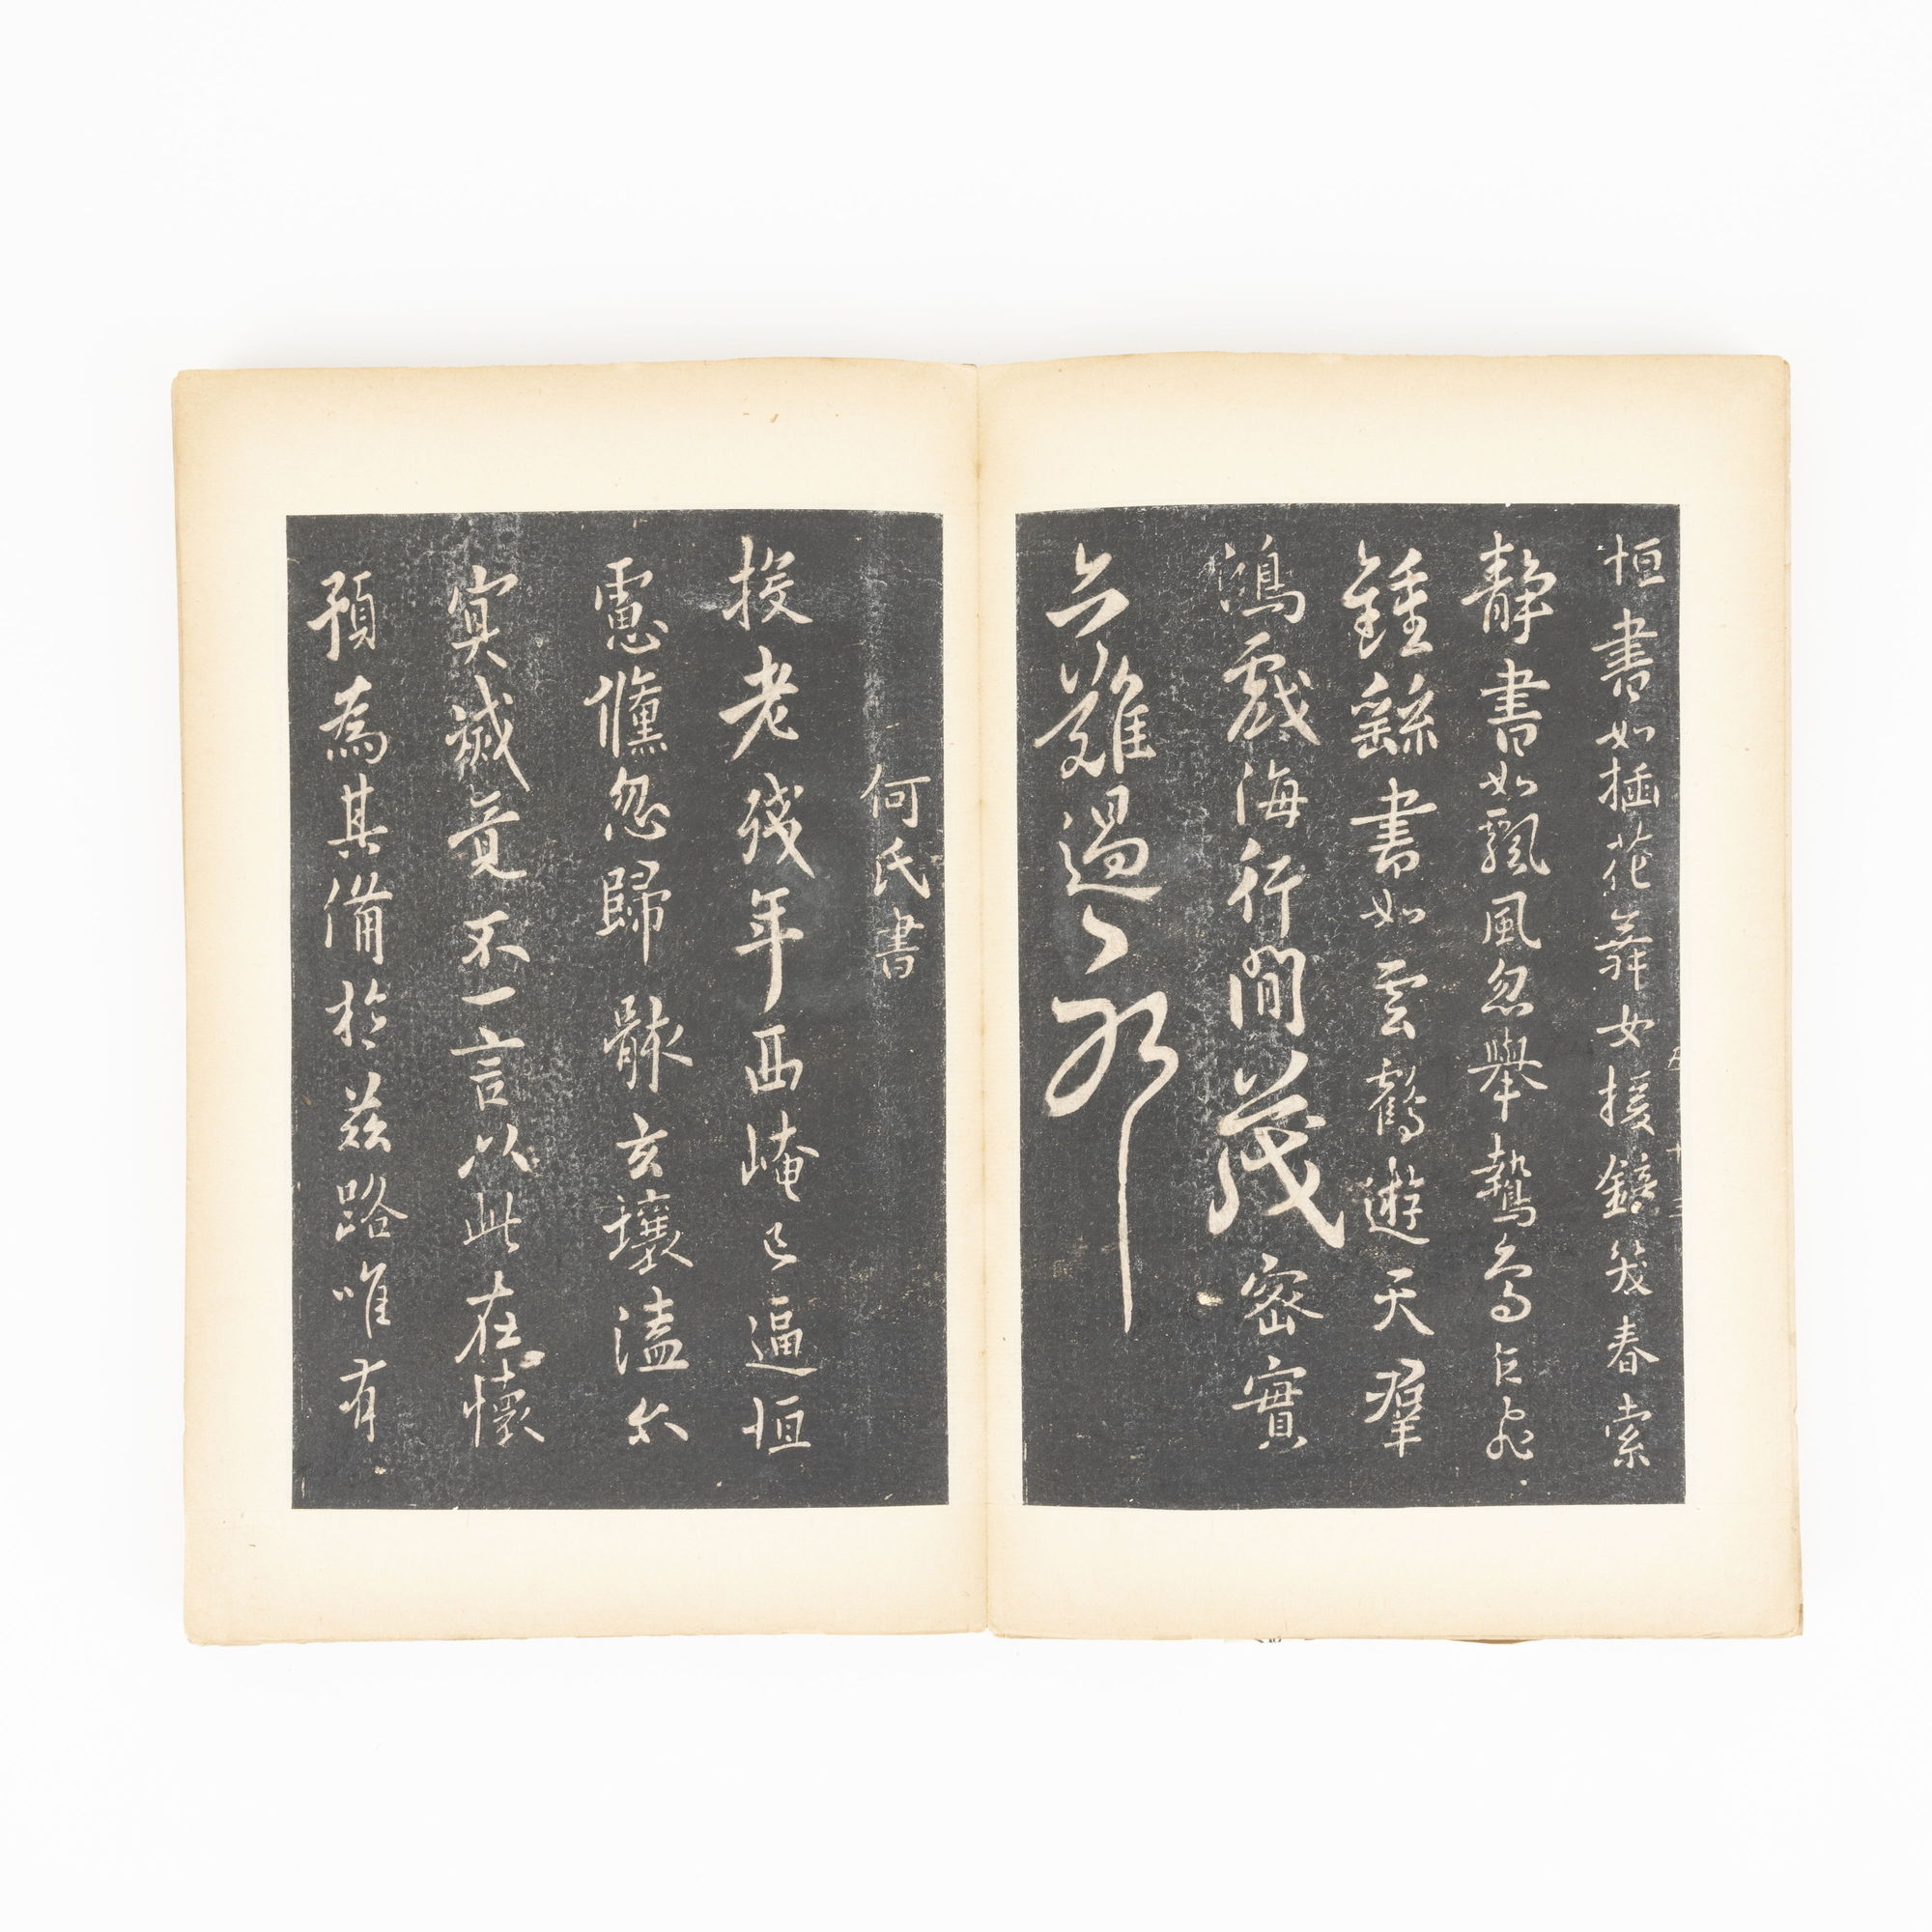 恒書如插花舞女援鏡笑春索
靜書如飄風忽舉鷙鳥乍飛
鍾繇書如雲鶴遊天群
鴻戲海行間茂密實
亦難過耶
何氏書
投老殘年西崦已逼恒
慮儻忽歸骸玄壤溘尔
冥滅竟不一言以此在懷
預為其備於茲路唯有